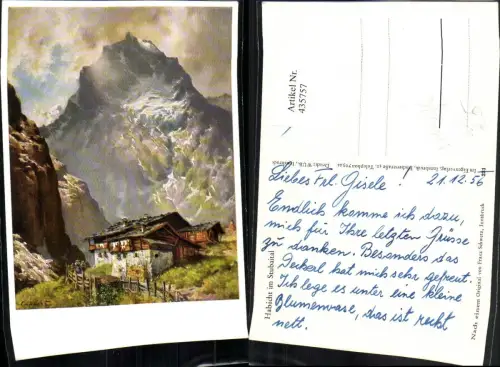 Artikel Nr.
435757
Liebes Frl. Gisele! 21.12.56
Endlich komme ich dazu,
mich für Ihre letzten Grüsse
zu danken. Besonders das
Deckerl hat mich sehr gefreut.
Ich lege es unter eine kleine
Blumenvase, das ist recht
nett.
Habicht im Stubaital
Nach einem Original von Franz Schwetz, Innsbruck
Im Eigenverlag, Innsbruck,